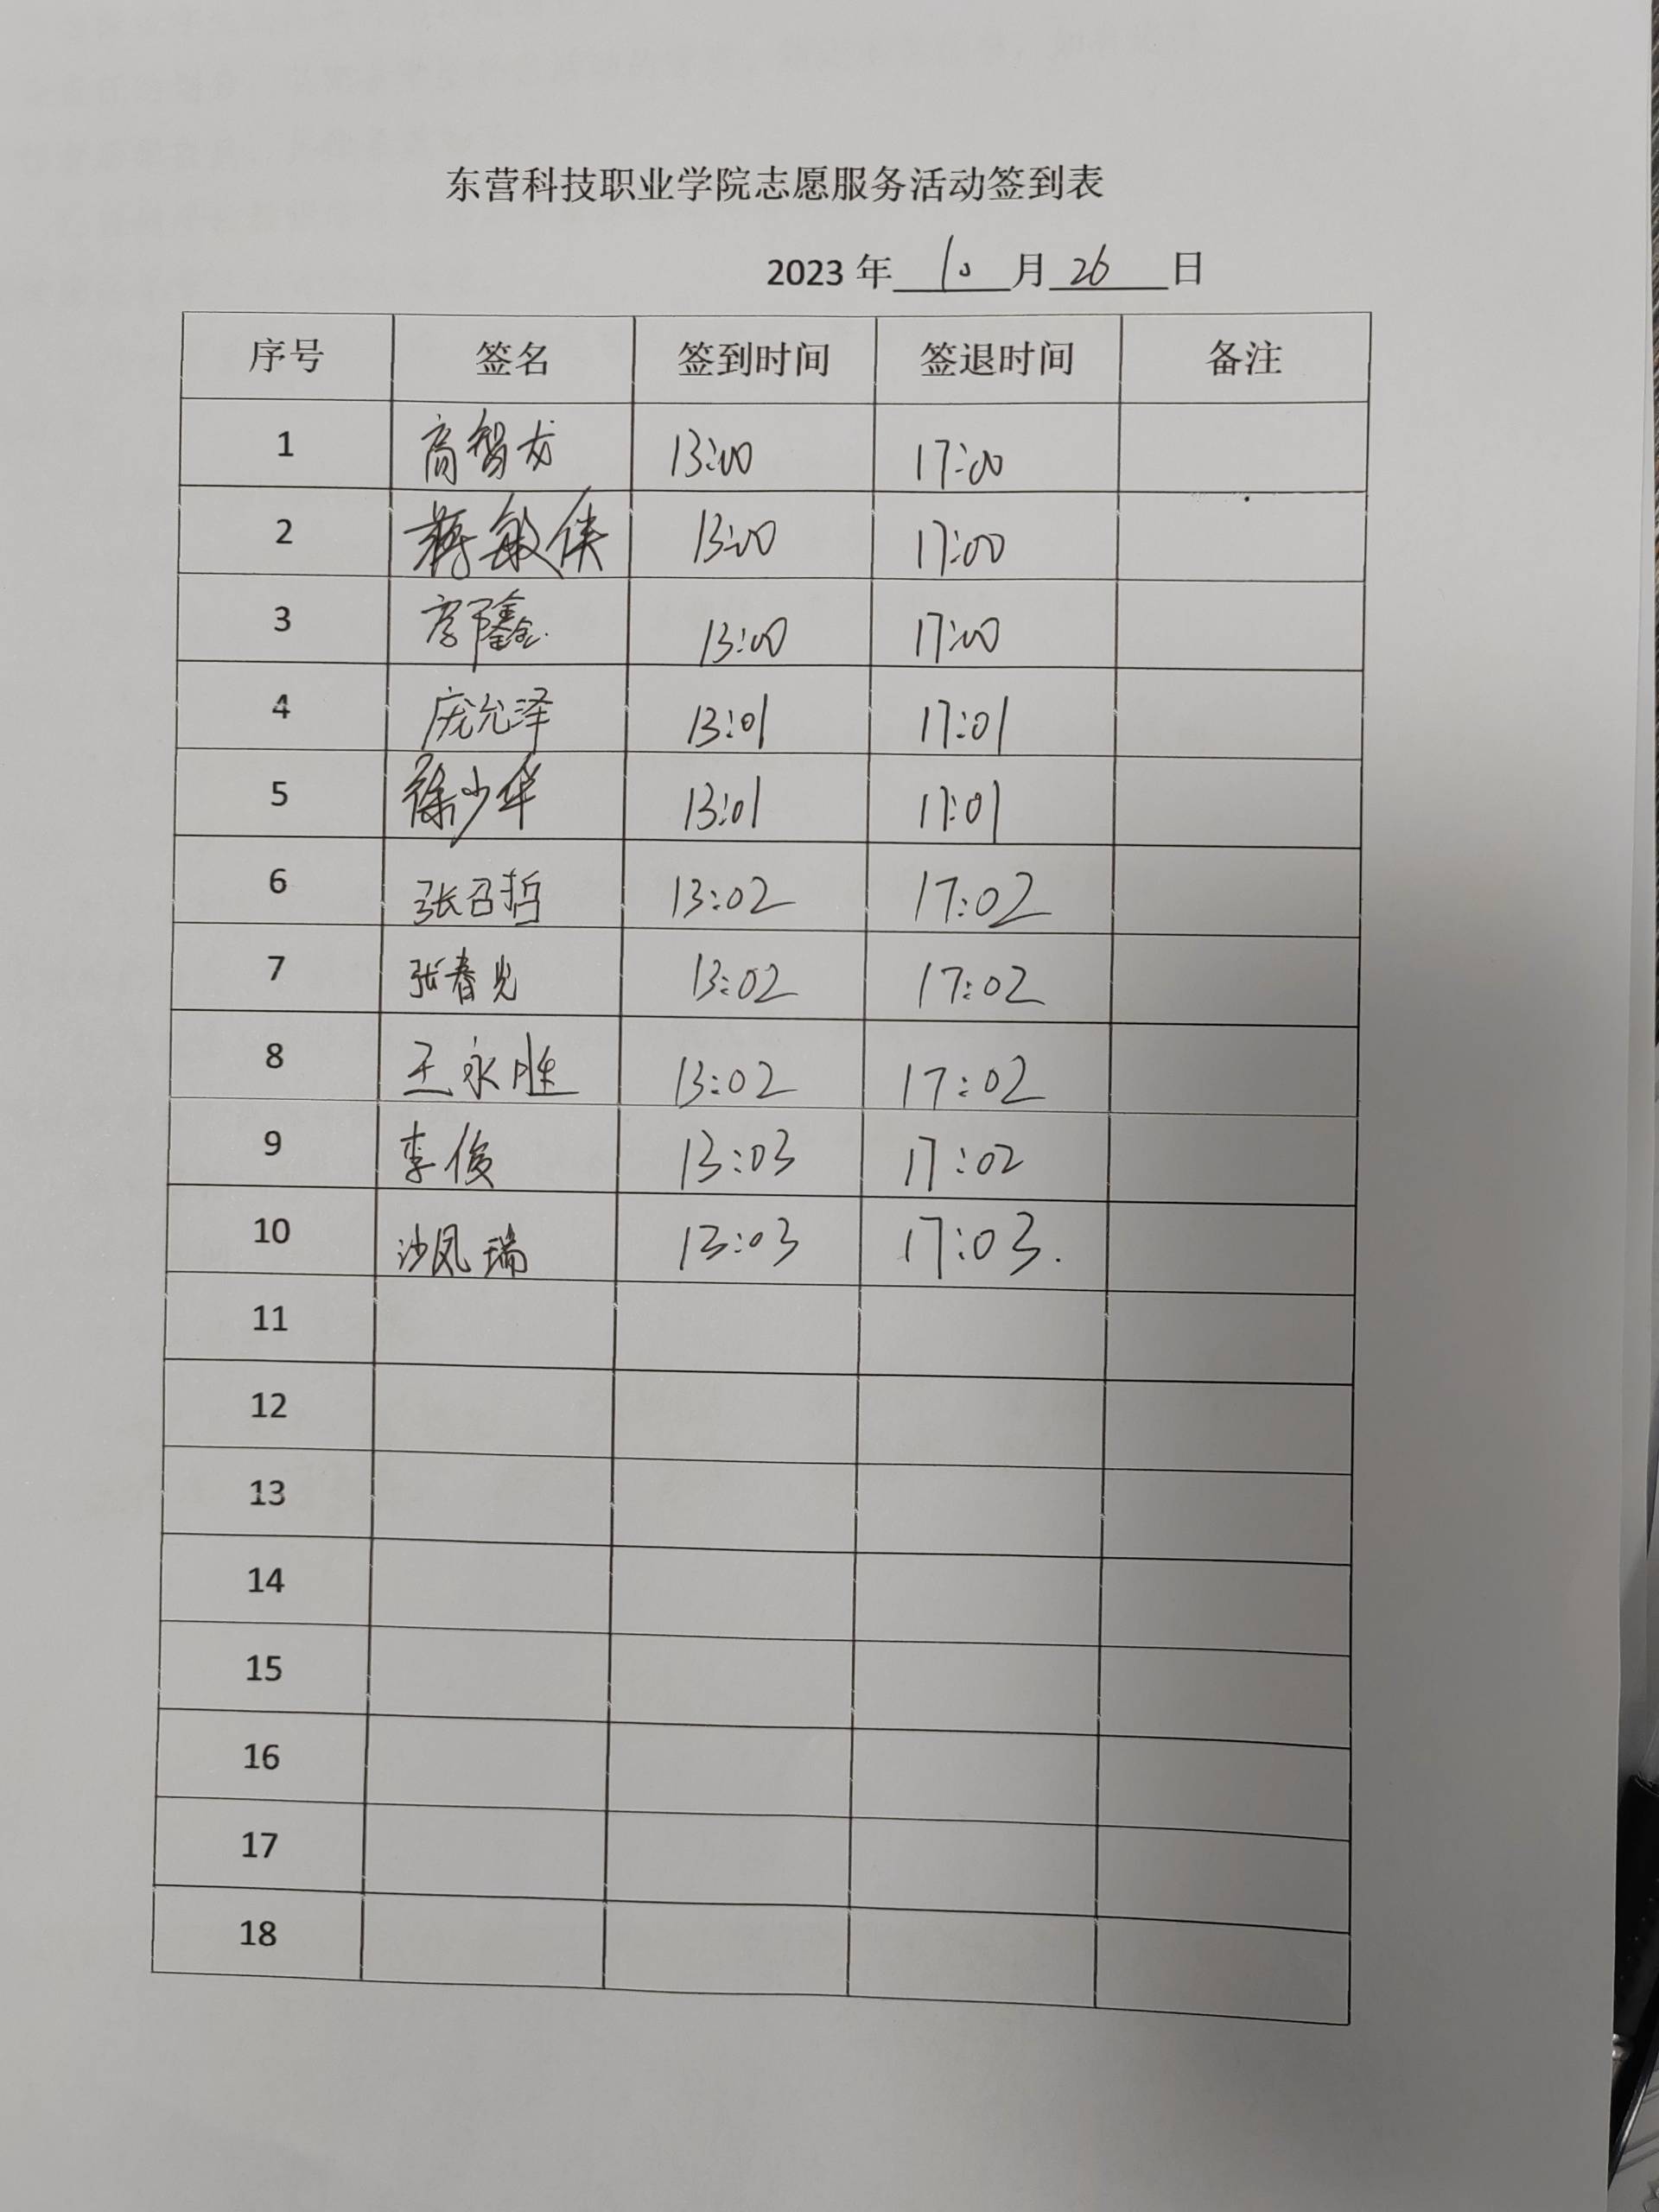 东营科技职业学院志愿服务活动签到表
2023 年 10 月 26 日
序号 签名 签到时间 签退时间 备注
1 高智龙 13:00 17:00
2 蒋敏侠 13:00 17:00
3 13:00 17:00
4 庞允泽 13:01 17:01
5 徐少华 13:01 17:01
6 张召哲 13:02 17:02
7 张春光 13:02 17:02
8 王永胜 13:02 17:02
9 李俊 13:03 17:02
10 沙凤瑞 13:03 17:03.
11
12
13
14
15
16
17
18